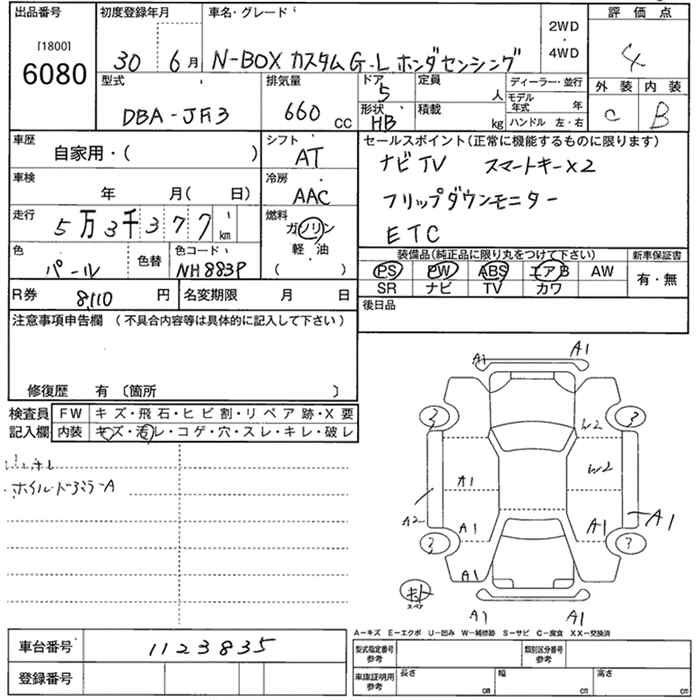 出品番号 初度登録年月 車名・グレード 2WD・4WD 評価点
[1800]
6080 30 6月 N-BOX カスタム G-L ホンダセンシング 4
型式 排気量 ドア 5 定員 人 ディーラー・並行 外装 内装
DBA-JF3 660 CC 形状 HB 積載 kg モデル年式 年 C B
ハンドル 左・右
車歴 シフト セールスポイント(正常に機能するものに限ります)
自家用・( ) AT ナビTV スマートキー×2
車検 冷房 フリップダウンモニター
年 月( 日) AAC ETC
走行 5万3千377km 燃料 ガソリン 軽・油 ( )
装備品(純正品に限り丸をつけて下さい) 新車保証書
色 パール 色替 色コード NH883P PS PW ABS エアB AW 有・無
SR ナビ TV カワ
R券 8,110 円 名変期限 月 日 後日品
注意事項申告欄 (不具合内容等は具体的に記入して下さい)
修復歴 有 〔箇所 〕
検査員記入欄 FW キズ・飛石・ヒビ割・リペア跡・X要
内装 キズ・汚レ・コゲ・穴・スレ・キレ・破レ
A1 A1
3 3
W2
W2
A1
A2 A1 A1 A1
3 3
A1
キト
スペア
A1 A1
A-キズ E-エクボ U-凹み W-補修跡 S-サビ C-腐食 XX-交換済
車台番号 1123835 型式指定番号 参考 類別区分番号 参考
登録番号 車庫証明用 参考 長さ cm 幅 cm 高さ cm